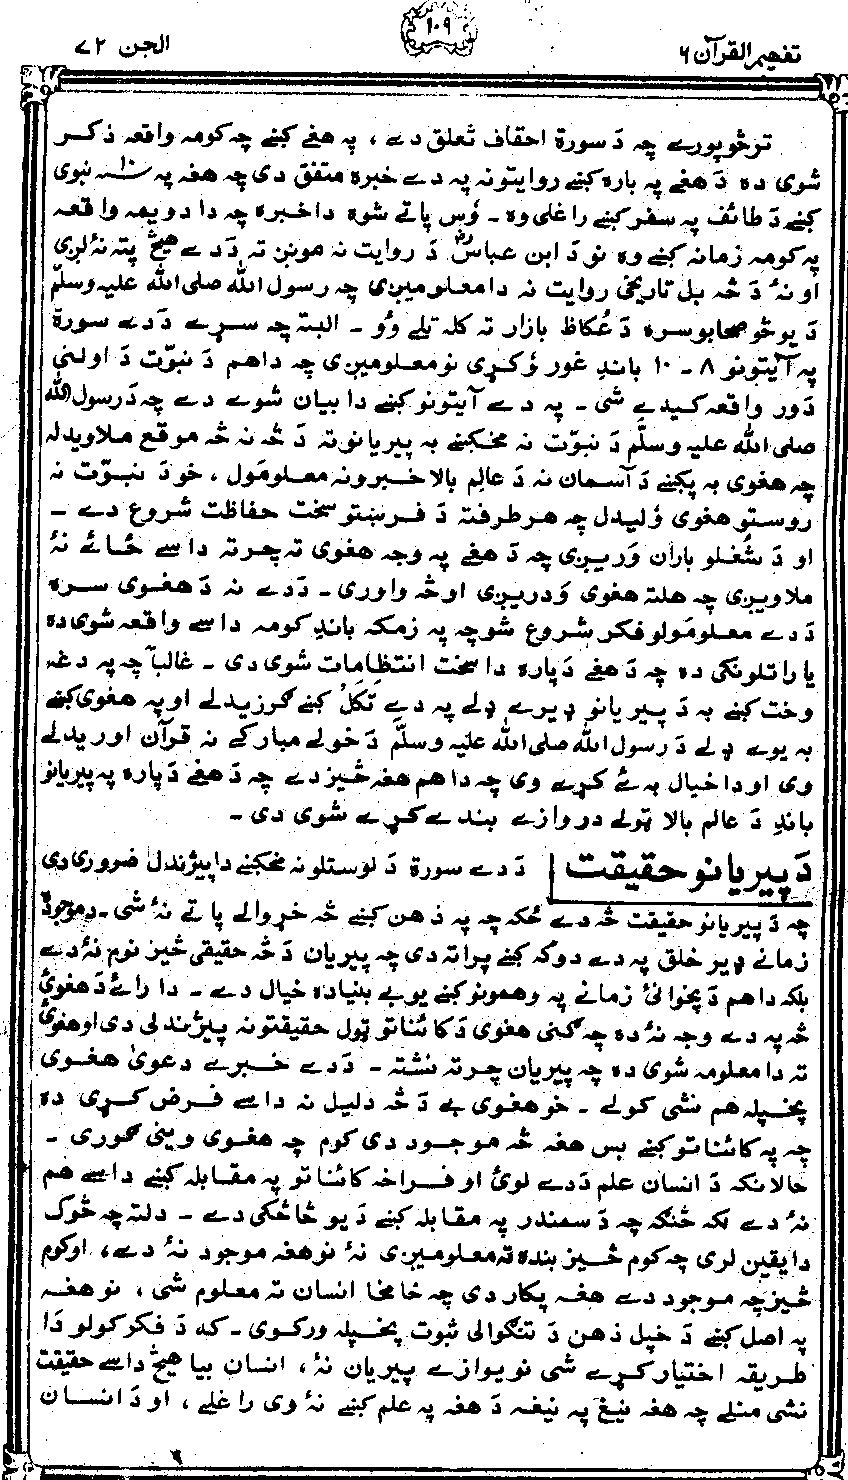 تفهیم القرآن ۶
۱۰۹
الجن ۷۲
ترڅو پورے چہ دَ سورة احقاف تعلق دے ، پہ هغے کښے چہ کومہ واقعہ ذکر
شوی دہ دَ هغے پہ بارہ کښے روایتونہ پہ دے خبرہ متفق دی چہ هغہ پہ ۱۰ سنہ نبوی
کښے دَ طائف پہ سفر کښے راغلی وہ ۔ وُس پاتے شوہ دا خبرہ چہ دا دویمہ واقعہ
پہ کومہ زمانہ کښے وہ نو دَ ابن عباسؓ دَ روایت نہ مونږ تہ دَدے هیڅ پتہ نۀ لږی
او نۀ دَ څہ بل تاریخی روایت نہ دا معلومیږی چہ رسول اللہ صلی اللہ علیہ وسلّم
دَ یو څو صحابو سرہ دَ عُکاظ بازار تہ کلہ تلے وُو ۔ البتہ چہ سړے دَدے سورة
پہ آیتونو ۸ ۔ ۱۰ باندِ غور وُکړی نو معلومیږی چہ دا هم دَ نبوّت دَ اولنی
دَور واقعہ کیدے شی ۔ پہ دے آیتونو کښے دا بیان شوے دے چہ دَ رسول اللہ
صلی اللہ علیہ وسلّم دَ نبوّت نہ مخکښے بہ پیریانو تہ دَ څہ نہ څہ موقع ملاویدلہ
چہ هغوی بہ پکښے دَ آسمان نہ دَ عالمِ بالا خبرونہ معلومَول ، خو دَ نبوّت نہ
روستو هغوی وُلیدل چہ هر طرفتہ دَ فرښتو سخت حفاظت شروع دے ۔
او دَ شُغلو باران وَریږی چہ دَ هغے پہ وجہ هغوی تہ چرتہ داسے ځائے نۀ
ملاویږی چہ هلتہ هغوی وَدریږی او څہ واوری ۔ دَدے نہ دَ هغوی سرہ
دَدے معلومَولو فکر شروع شو چہ پہ زمکہ باندِ کومہ داسے واقعہ شوی دہ
یا راتلونکی دہ چہ دَ هغے دَپارہ دا سخت انتظامات شوی دی ۔ غالباً چہ پہ دغہ
وخت کښے بہ دَ پیریانو ډیرے ډلے پہ دے تکَلُ کښے ګرزیدلے او پہ هغوی کښے
بہ یوے ډلے دَ رسول اللہ صلی اللہ علیہ وسلّم دَ خولے مبارکے نہ قرآن اوریدلے
وی او دا خیال بہ ئے کړے وی چہ دا هم هغہ څیز دے چہ دَ هغے دَپارہ پہ پیریانو
باندِ دَ عالم بالا ټولے دروازے بندے کړے شوی دی ۔
دَ پیریانو حقیقت
دَ دے سورة دَ لوستلو نہ مخکښے دا پیژندل ضروری دی
چہ دَ پیریانو حقیقت څہ دے ځکہ چہ پہ ذهن کښے څہ خړوالے پاتے نۀ شی ۔ دموجودہ
زمانے ډیر خلق پہ دے دوکہ کښے پراتہ دی چہ پیریان دَ څہ حقیقی څیز نوم نۀ دے
بلکہ دا هم دَ پخوانئ زمانے پہ وهمونو کښے یو بے بنیادہ خیال دے ۔ دا رائے دَ هغوی
څہ پہ دے وجہ نۀ دہ چہ ګنی هغوی دَ کائناتو ټول حقیقتونہ پیژندلی دی او هغوی
تہ دا معلومہ شوی دہ چہ پیریان چرتہ نشتہ ۔ دَدے خبرے دعویٰ هغوی
پخپلہ هم نشی کولے ۔ خو هغوی بے دَ څہ دلیل نہ داسے فرض کړی دہ
چہ پہ کائناتو کښے بس هغہ څہ موجود دی کوم چہ هغوی وینی ګوری ۔
حالانکہ دَ انسان علم دَدے لوئ او فراخہ کائناتو پہ مقابلہ کښے داسے هم
نۀ دے لکہ څنګہ چہ دَ سمندر پہ مقابلہ کښے دَ یو څاڅکی دے ۔ دلتہ چہ څوک
دا یقین لری چہ کوم څیز بندہ تہ معلومیږی نۀ نو هغہ موجود نۀ دے ، او کوم
څیز چہ موجود دے هغہ پکار دی چہ خامخا انسان تہ معلوم شی ، نو هغہ
پہ اصل کښے دَ خپل ذهن دَ تنګوالی ثبوت پخپلہ ورکوی ۔ کہ دَ فکر کولو دا
طریقہ اختیار کړے شی نو یوازے پیریان نۀ ، انسان بیا هیڅ داسے حقیقت
نشی منلے چہ هغہ نیغ پہ نیغہ دَ هغہ پہ علم کښے نۀ وی راغلے ، او دَ انسان